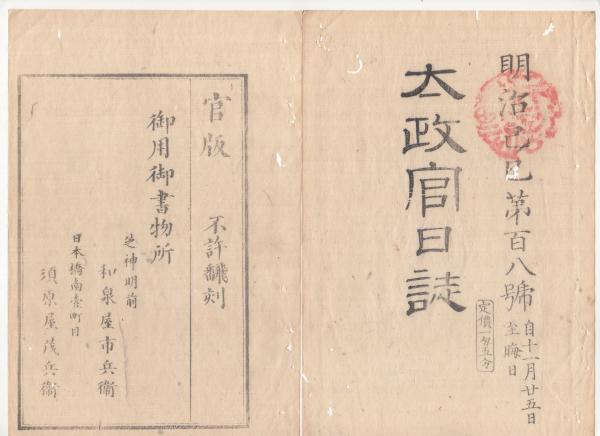 明治己巳第百八號
自十一月廿五日
至晦日
太政官日誌
定價一匁五分
官版 不許翻刻
御用御書物所
芝神明前
和泉屋市兵衞
日本橋南壹町目
須原屋茂兵衞